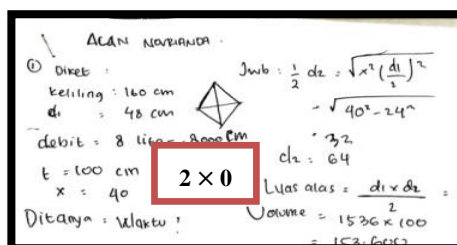 ALAN NOVRIANDA.
① Diket :
keliling : 160 cm
d₁ : 48 cm
debit = 8 8000 cm
t = 100 cm
x = 40
Ditanya : Waktu ?
2 × 0
Jwb : 1/2 d2 = √x² (d1/2)²
= √40² - 24²
= 32
d2 : 64
Luas alas = d1 x d2 / 2 =
Volume = 1536 x 100